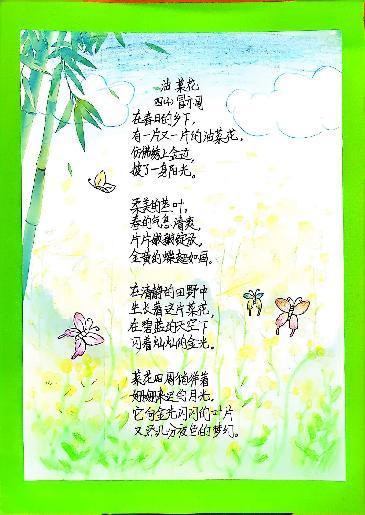 油菜花
在春日的乡下，
有一片又一片的油菜花，
仿佛镀上金边，
披了一身阳光。
柔美的茎叶，
春的气息清爽，
片片嫩嫩绽放，
金黄的蝶翅如画。
在清静的田野中
生长着这片菜花，
在碧蓝的天空下
闪着灿灿的金光。
菜花四周俏伴着
姗姗来迟的月光，
它与金光闪闪的
又添几分夜色的梦幻。